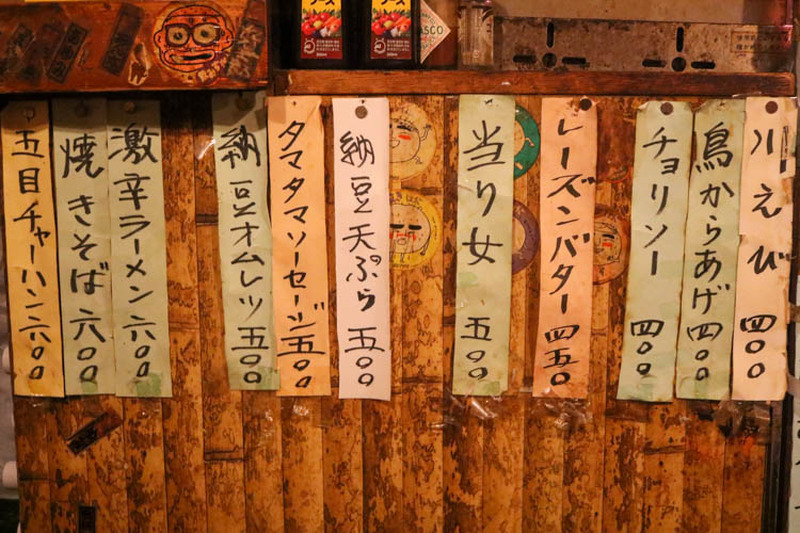 川えび 四〇〇
鳥からあげ 四〇〇
チョリソー 四〇〇
レーズンバター 四五〇
当り女 五〇〇
納豆天ぷら 五〇〇
タマタマソーセージ 五〇〇
納豆オムレツ 五〇〇
激辛ラーメン 六〇〇
焼きそば 六〇〇
五目チャーハン 六〇〇
ソース
ソース